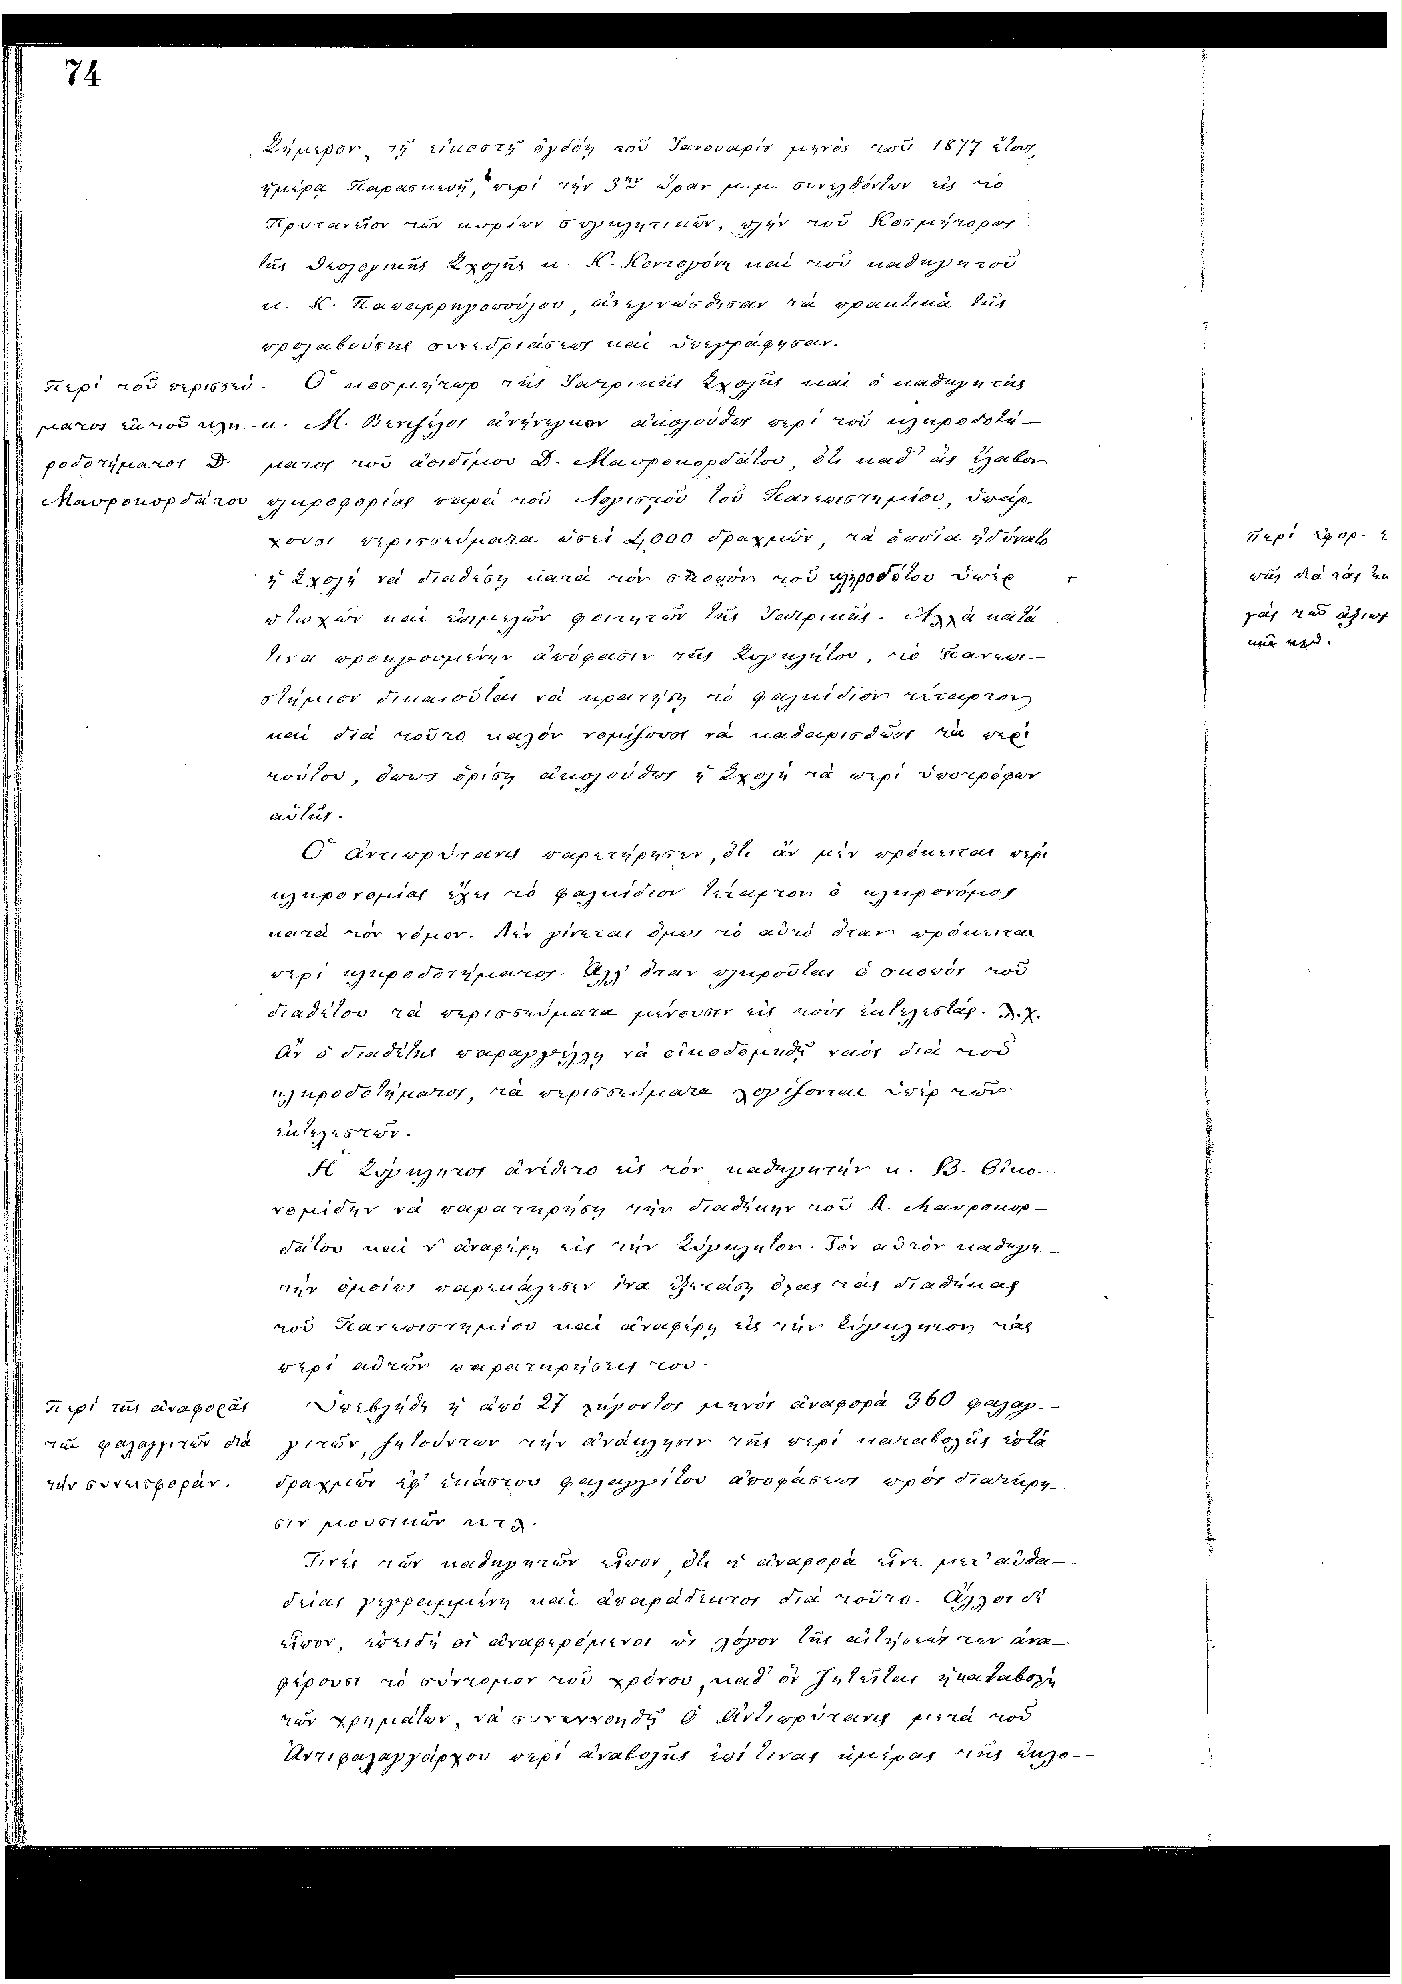 74
Σήμερον, τῇ εἰκοστῇ ὀγδόῃ τοῦ Ἰανουαρίου μηνὸς τοῦ 1877 ἔτους,
ἡμέρᾳ Παρασκευῇ, περὶ τὴν 3ην ὥραν μ.μ. συνελθόντων εἰς τὸ
Πρυτανεῖον τῶν κυρίων συγκλητικῶν, πλὴν τοῦ Κοσμήτορος
τῆς Θεολογικῆς Σχολῆς κ. Κ. Κοντογόνη καὶ τοῦ καθηγητοῦ
κ. Κ. Παπαρρηγοπούλου, ἀνεγνώσθησαν τὰ πρακτικὰ τῆς
προλαβούσης συνεδριάσεως καὶ ὑπεγράφησαν.
Περὶ τοῦ περισσεύ-
ματος ἐκ τοῦ κλη-
ροδοτήματος Δ.
Μαυροκορδάτου
Ὁ κοσμήτωρ τῆς Ἰατρικῆς Σχολῆς καὶ ὁ καθηγητὴς
κ. Μ. Βενιζέλος ἀνήνεγκον ἀκολούθως περὶ τοῦ κληροδοτή-
ματος τοῦ ἀοιδίμου Δ. Μαυροκορδάτου, ὅτι καθ' ἃς ἔλαβον
πληροφορίας παρὰ τοῦ Λογιστοῦ τοῦ Πανεπιστημίου, ὑπάρ-
χουσι περισσεύματα ὡσεὶ 4,000 δραχμῶν, τὰ ὁποῖα ἠδύνατο
ἡ Σχολὴ νὰ διαθέσῃ κατὰ τὸν σκοπὸν τοῦ κληροδότου ὑπὲρ
πτωχῶν καὶ ἐπιμελῶν φοιτητῶν τῆς Ἰατρικῆς. Ἀλλὰ κατά
τινα προηγουμένην ἀπόφασιν τῆς Συγκλήτου, τὸ Πανεπι-
στήμιον δικαιοῦται νὰ κρατήσῃ τὸ φαλκίδιον τέταρτον
καὶ διὰ τοῦτο καλὸν νομίζουσι νὰ καθαρισθῶσι τὰ περὶ
τούτου, ὅπως ὁρίσῃ ἀκολούθως ἡ Σχολὴ τὰ περὶ ὑποτρόφων
αὐτῆς.
Ὁ Ἀντιπρύτανις παρετήρησεν, ὅτι ἂν μὲν πρόκειται περὶ
κληρονομίας ἔχει τὸ φαλκίδιον τέταρτον ὁ κληρονόμος
κατὰ τὸν νόμον. Δὲν γίνεται ὅμως τὸ αὐτὸ ὅταν πρόκειται
περὶ κληροδοτήματος. Ἀλλ' ὅταν πληροῦται ὁ σκοπὸς τοῦ
διαθέτου τὰ περισσεύματα μένουσιν εἰς τοὺς ἐκτελεστάς. λ.χ.
Ἂν ὁ διαθέτης παραγγείλῃ νὰ οἰκοδομηθῇ ναὸς διὰ τοῦ
κληροδοτήματος, τὰ περισσεύματα λογίζονται ὑπὲρ τῶν
ἐκτελεστῶν.
Ἡ Σύγκλητος ἀνέθετο εἰς τὸν καθηγητὴν κ. Β. Οἰκο-
νομίδην νὰ παρατηρήσῃ τὴν διαθήκην τοῦ Δ. Μαυροκορ-
δάτου καὶ ν' ἀναφέρῃ εἰς τὴν Σύγκλητον. Τὸν αὐτὸν καθηγη-
τὴν ὁμοίως παρεκάλεσεν ἵνα ἐξετάσῃ ὅλας τὰς διαθήκας
τοῦ Πανεπιστημίου καὶ ἀναφέρῃ εἰς τὴν Σύγκλητον τὰς
περὶ αὐτῶν παρατηρήσεις του.
Περὶ τῆς ἀναφορᾶς
τῶν φαλαγγιτῶν διὰ
τὴν συνεισφοράν.
Ὑπεβλήθη ἡ ἀπὸ 27 λήγοντος μηνὸς ἀναφορὰ 360 φαλαγ-
γιτῶν, ζητούντων τὴν ἀνάκλησιν τῆς περὶ καταβολῆς ἑπτὰ
δραχμῶν ἐφ' ἑκάστου φαλαγγίτου ἀποφάσεως πρὸς διατήρη-
σιν μουσικῶν κτλ.
Τινὲς τῶν καθηγητῶν εἶπον, ὅτι ἡ ἀναφορὰ εἶνε μετ' αὐθα-
δείας γεγραμμένη καὶ ἀπαράδεκτος διὰ τοῦτο. Ἄλλοι δὲ
εἶπον, ἐπειδὴ οἱ ἀναφερόμενοι ὡς λόγον τῆς αἰτήσεώς των ἀνα-
φέρουσι τὸ σύντομον τοῦ χρόνου, καθ' ὃν ζητεῖται ἡ καταβολὴ
τῶν χρημάτων, νὰ συνεννοηθῇ ὁ Ἀντιπρύτανις μετὰ τοῦ
Ἀντιφαλαγγάρχου περὶ ἀναβολῆς ἐπί τινας ἡμέρας τῆς ἐκλο-
Περὶ ἐφορ.
διὰ τὰς
τοῦ